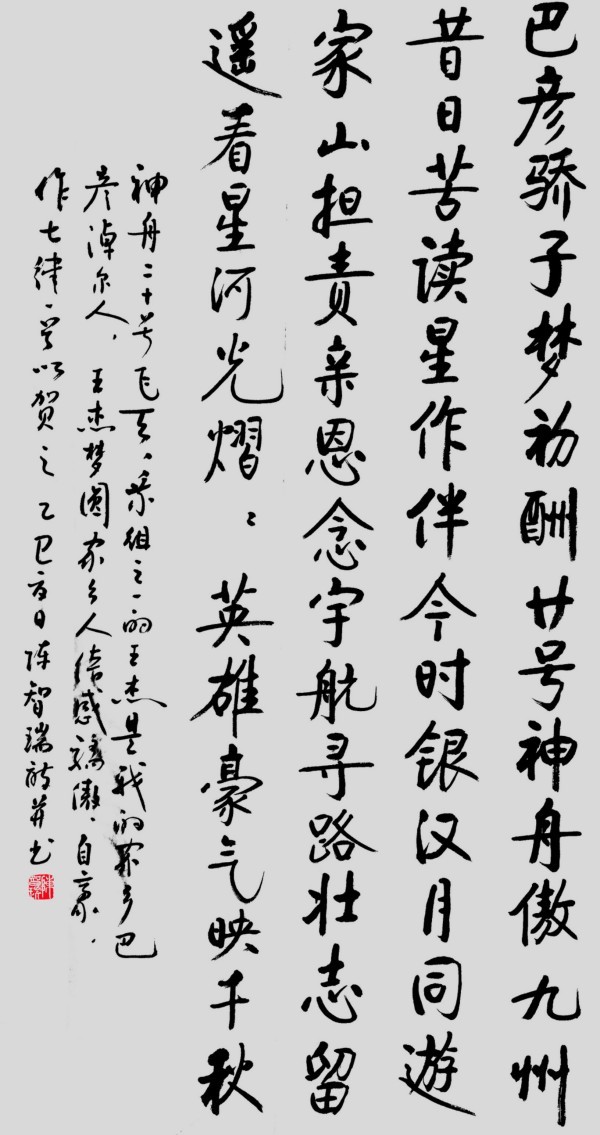 巴彦骄子梦初酬廿号神舟傲九州
昔日苦读星作伴今时银汉月同遊
家山担责亲恩念宇航寻路壮志留
遥看星河光熠〻英雄豪气映千秋
神舟二十号飞天、乘组之一的王杰是我的家乡巴
彦淖尔人，王杰梦圆家乡人倍感骄傲、自豪，
作七律一首以贺之乙巳夏日陈智瑞诗并书